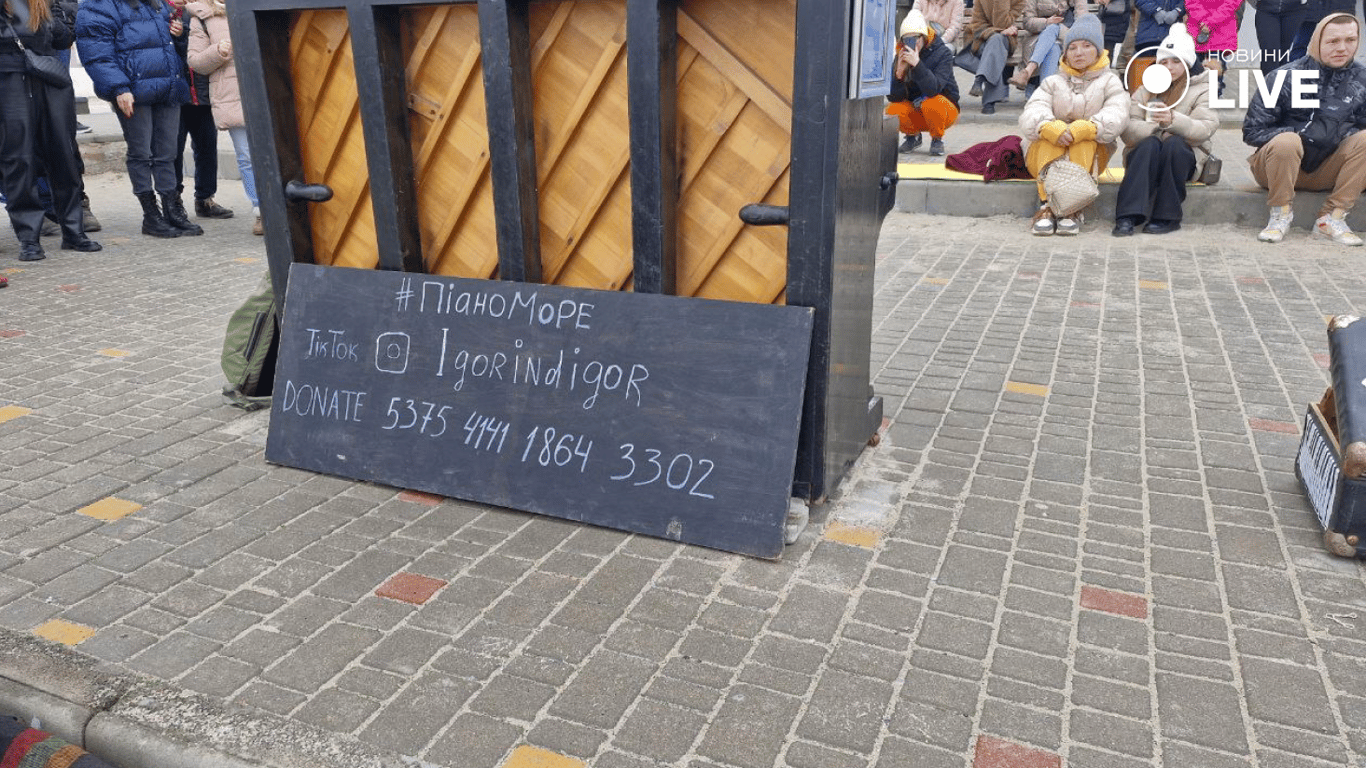 НОВИНИ
LIVE
#ПіаноМоре
TikTok Igorindigor
DONATE 5375 4141 1864 3302